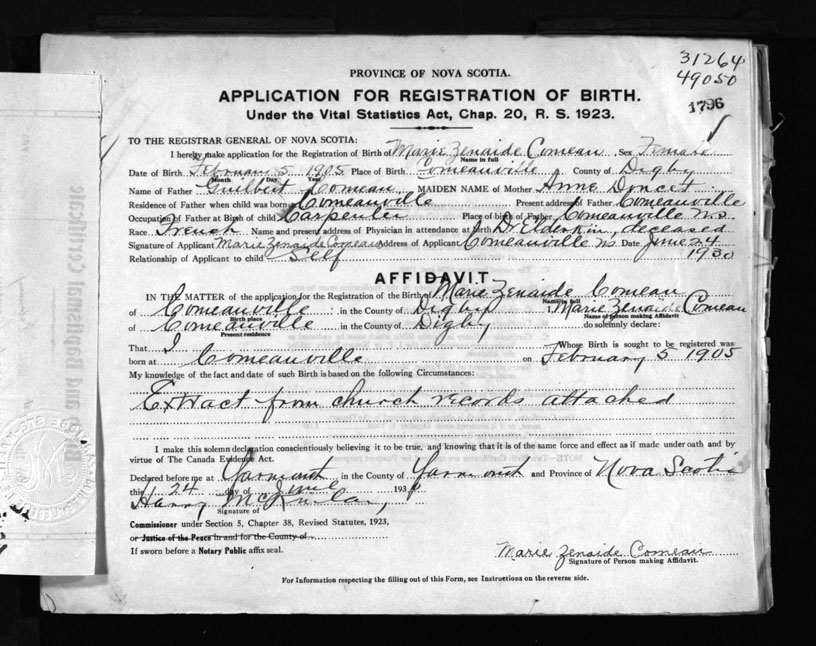 31264
49050
1796
PROVINCE OF NOVA SCOTIA.
APPLICATION FOR REGISTRATION OF BIRTH.
Under the Vital Statistics Act, Chap. 20, R. S. 1923.
TO THE REGISTRAR GENERAL OF NOVA SCOTIA:
I hereby make application for the Registration of Birth of Marie Zenaide Comeau Sex Female
Name in full
Date of Birth February 5 1905 Place of Birth Comeauville County of Digby
Month Day Year
Name of Father Guilbert Comeau MAIDEN NAME of Mother Anne Doucet
Residence of Father when child was born Comeauville Present address of Father Comeauville
Occupation of Father at Birth of child Carpenter Place of birth of Father Comeauville N.S.
Race French Name and present address of Physician in attendance at Birth Dr. Elderkin, deceased
Signature of Applicant Marie Zenaide Comeau Address of Applicant Comeauville NS Date June 24
Relationship of Applicant to child Self 1930
AFFIDAVIT.
IN THE MATTER of the application for the Registration of the Birth of Marie Zenaide Comeau
Name in full
of Comeauville in the County of Digby I, Marie Zenaide Comeau
Birth place Name of Person making Affidavit
of Comeauville in the County of Digby do solemnly declare:
Present residence
That I Whose Birth is sought to be registered was
born at Comeauville on February 5 1905
My knowledge of the fact and date of such Birth is based on the following Circumstances:
Extract from church records attached
I make this solemn declaration conscientiously believing it to be true, and knowing that it is of the same force and effect as if made under oath and by
virtue of The Canada Evidence Act.
Declared before me at Yarmouth in the County of Yarmouth and Province of Nova Scotia
this 24 day of June 1930
Harry
Signature of
Commissioner under Section 5, Chapter 38, Revised Statutes, 1923,
or Justice of the Peace in and for the County of
If sworn before a Notary Public affix seal.
Marie Zenaide Comeau
Signature of Person making Affidavit.
For Information respecting the filling out of this Form, see Instructions on the reverse side.
and Baptismal Certificate